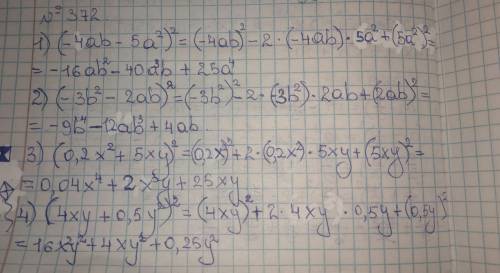 № 372.
1) (-4ab - 5a²)² = (-4ab)² - 2 · (-4ab) · 5a² + (5a²)² =
= -16ab² - 40a³b + 25a⁴
2) (-3b² - 2ab)² = (-3b²)² - 2 · (3b²) · 2ab + (2ab)² =
= -9b⁴ - 12ab³ + 4ab.
3) (0,2x² + 5xy)² = (0,2x²)² + 2 · (0,2x²) · 5xy + (5xy)² =
= 0,04x⁴ + 2x³y + 25xy
4) (4xy + 0,5y²)² = (4xy)² + 2 · 4xy · 0,5y + (0,5y)²
= 16x²y² + 4xy² + 0,25y²